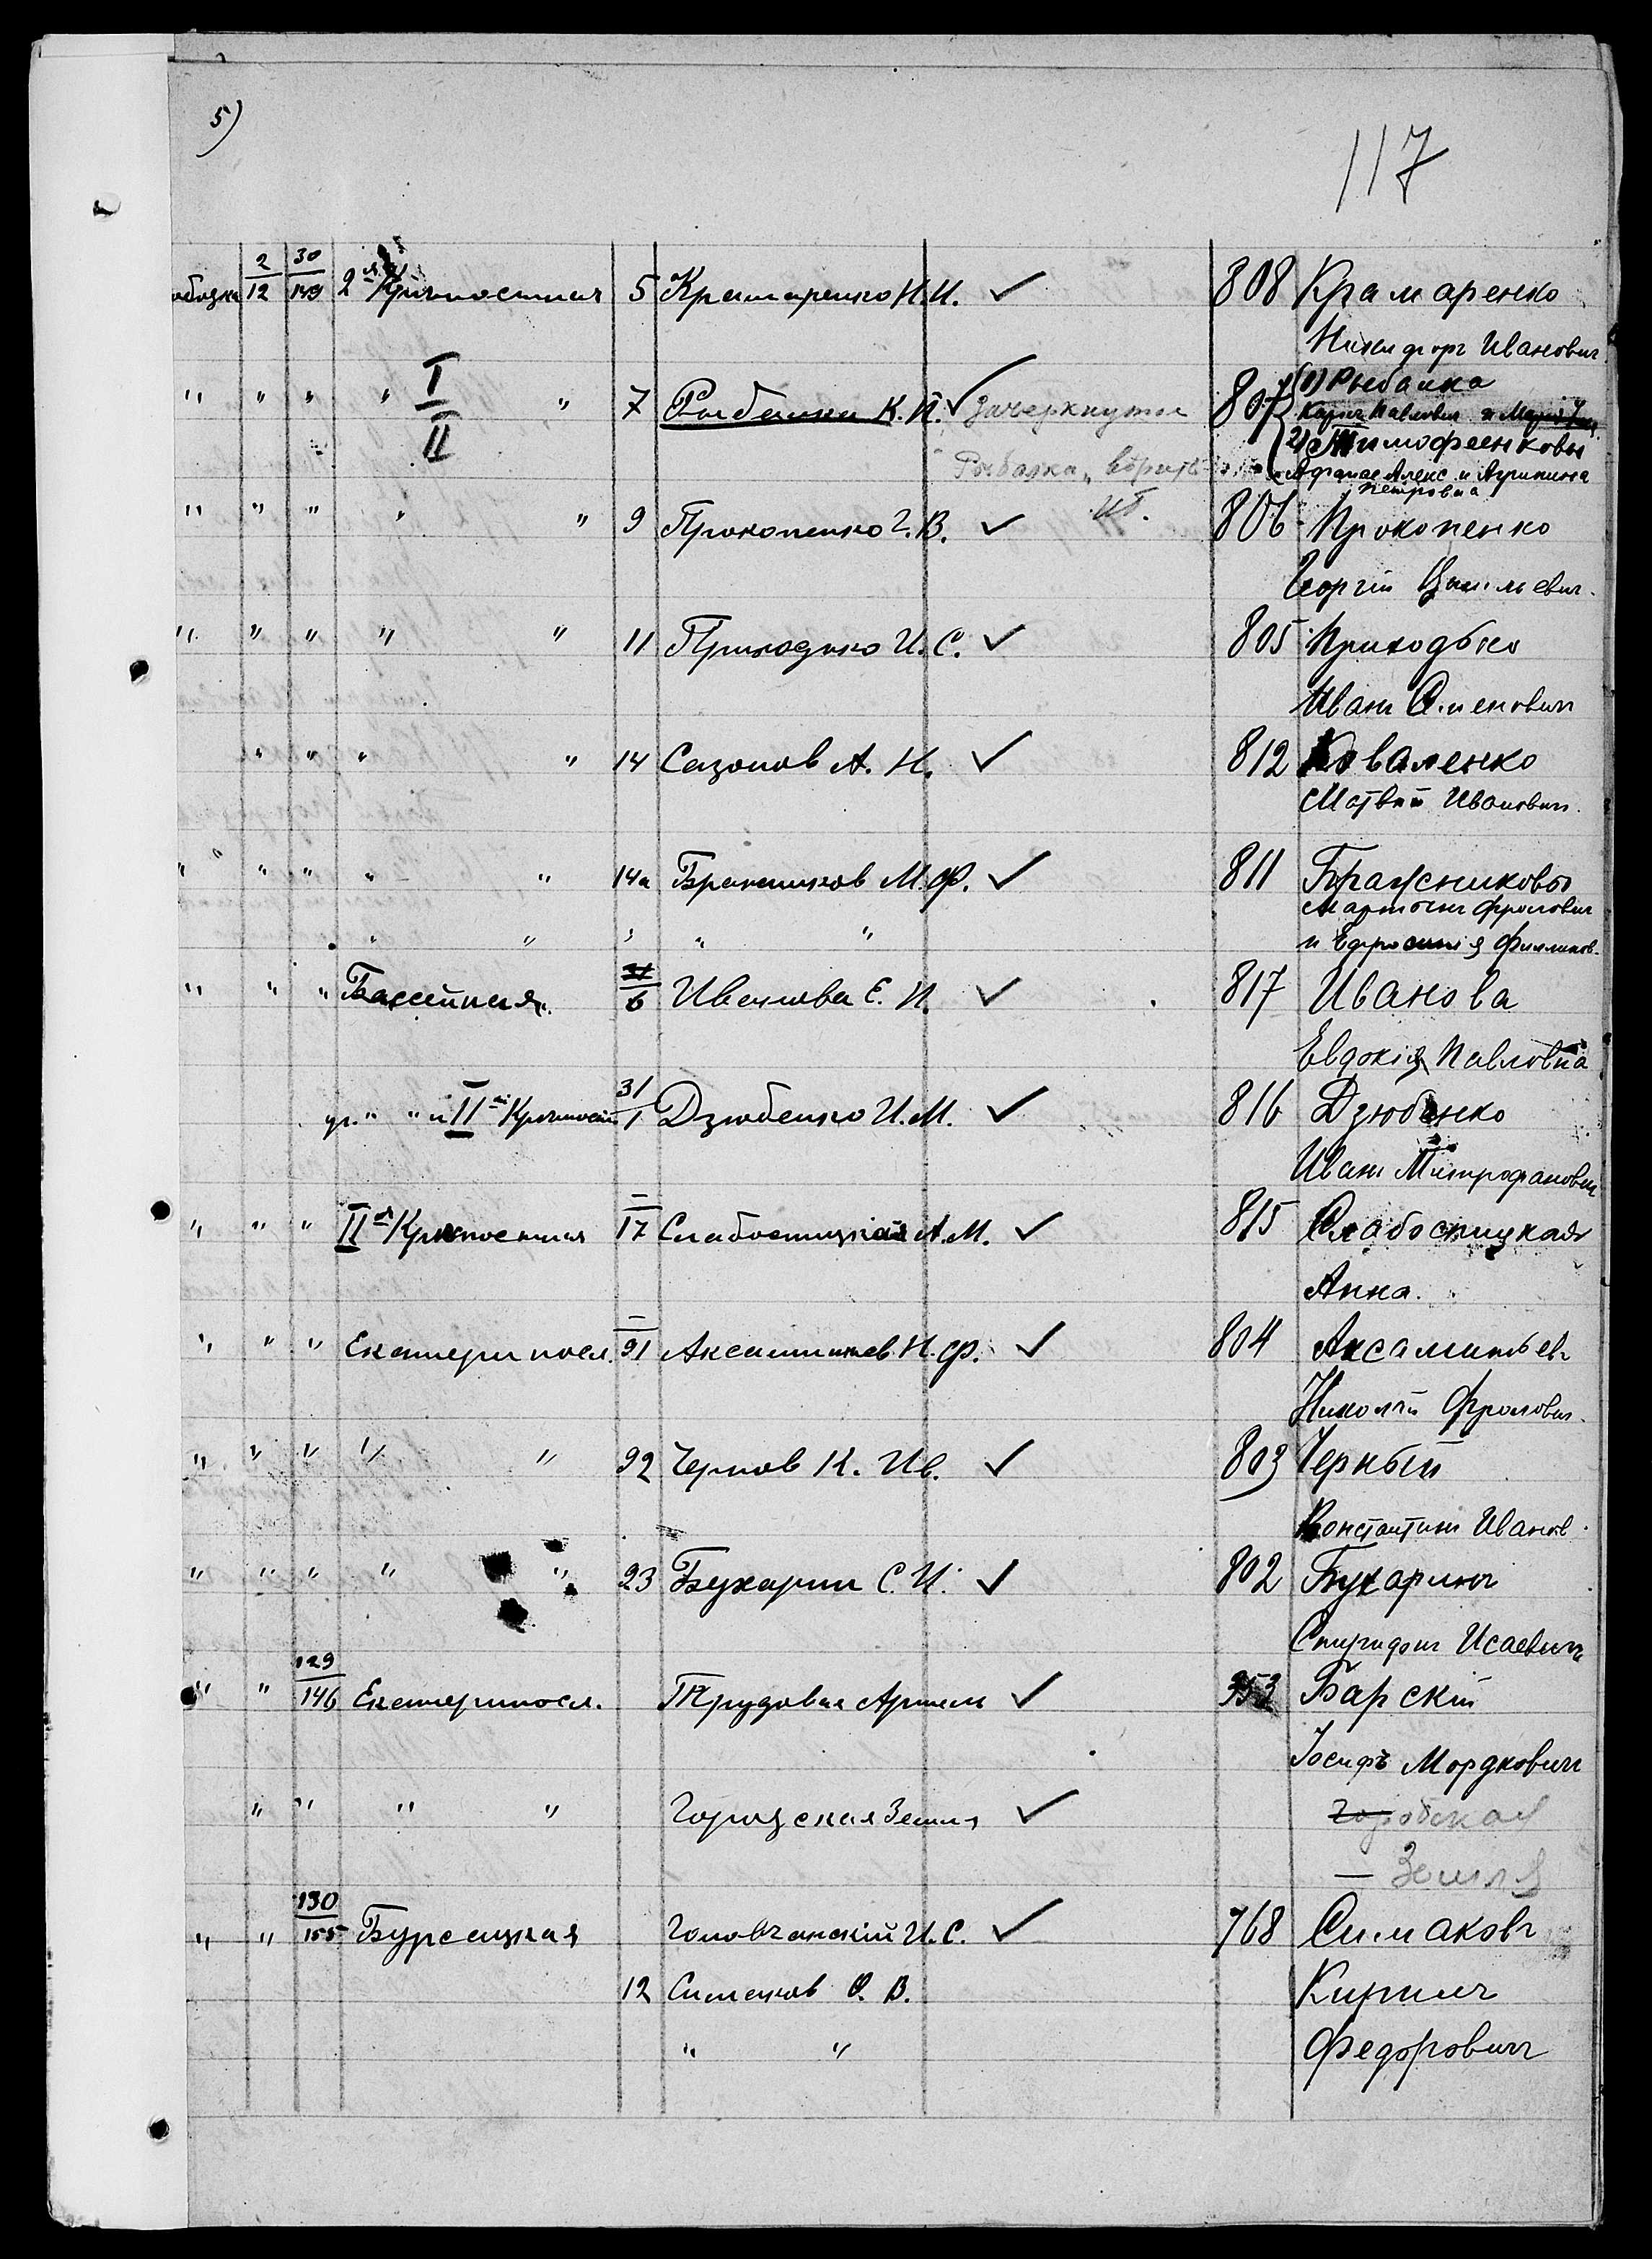 5)
117
2/12 30/149 2я Крѣпостная 5 Крамаренко Н.И. ✓ 808 Крамаренко
Никифоръ Ивановичъ
" " " " I/II " 7 Рыбалки К. П. ✓ зачеркнуты 807 (1) Рыбалка
Карпъ Павловичъ и
2) Тимофеенковы
Рыбалка, Афанас Алекс и Агрипина
Петровна
" " " " " 9 Прокопенко Г. В. ✓ 806 Прокопенко
Георгій Васильевич.
" " " " " 11 Приходько И. С. ✓ 805 Приходько
Иванъ Семеновичъ
" " " " 14 Сазонов А. Н. ✓ 812 Коваленко
Матвѣй Ивановичъ.
" " " " " 14а Бражников М. Ф. ✓ 811 Бражниковы
Мартынъ Фроловичъ
" " " " " и Ефросинія Филипов.
" " " Бассейная 6 Иванова Е. П. ✓ 817 Иванова
Евдокія Павловна
уг. " " и IIй Крѣпост. 31/1 Дзюбенко И. М. ✓ 816 Дзюбенко
Иванъ Митрофанович
" " " IIя Крѣпостная 17 Слабостицкая А. М. ✓ 815 Слабостицкая
Анна.
" " " Екатериносл. 91 Аксаментьев Н. Ф. ✓ 804 Аксаментьевъ
Николай Фролович.
" " " " " 92 Чернов К. Ив. ✓ 803 Черный
Константин Иванов.
" " " " " 23 Бухарин С. И. ✓ 802 Бухаринъ
Спиридонъ Исаевичъ
" " 129/146 Екатериносл. Трудовая Артель ✓ 353 Барскій
Іосифъ Мордковичъ
" " " " Городская Земля ✓ Городская
— Земля
" " 130/155 Бурсацкая Головчанскій И. С. ✓ 768 Симаковъ
12 Симаков Ф. В. Кирилъ
" " Федоровичъ